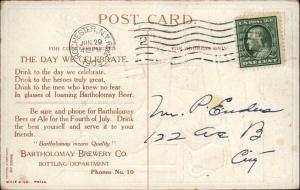 POST CARD.
ROCHESTER, N.Y.
JUN 29
THE DAY WE CELEBRATE.
Drink to the day we celebrate.
Drink to the heroes truly great,
Drink to the men who knew no fear
In glasses of foaming Bartholomay Beer.
Be sure and phone for Bartholomay
Beer or Ale for the Fourth of July. Drink
the best yourself and serve it to your
friends.
"Bartholomay means Quality"
BARTHOLOMAY BREWERY CO.
BOTTLING DEPARTMENT
Phones No. 10
ONE CENT
Mr. P. Enders
122 Ave B
City